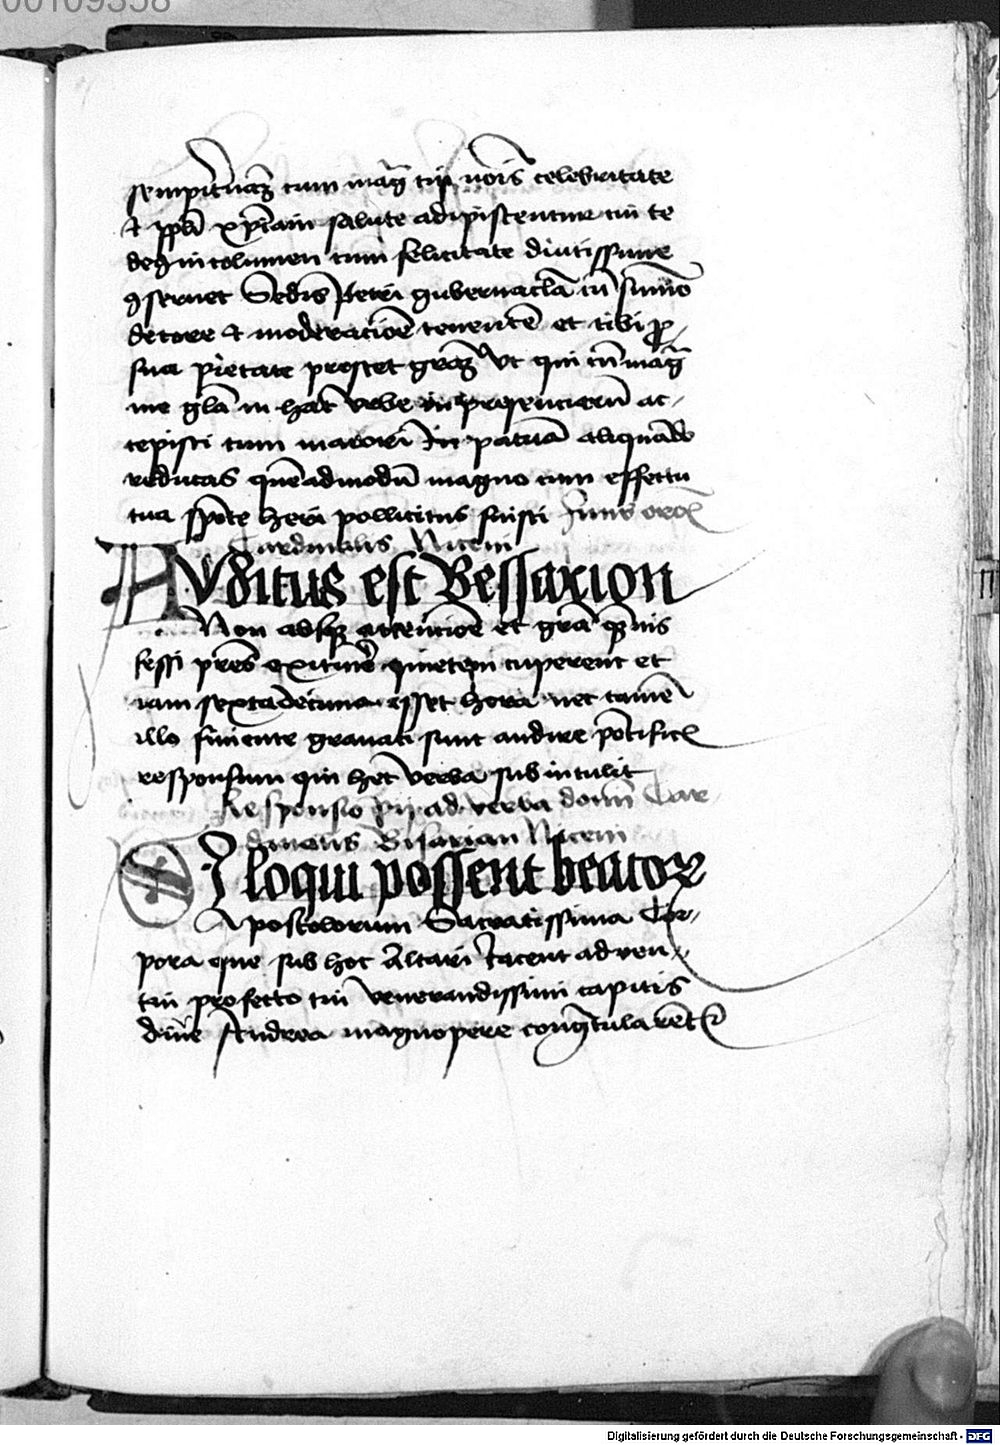 00109358
sempit̃náqꝫ cum mag̃ tui nõis celebritate
et ppl̃i xp̃iani salute adipiscentur tu te
deꝰ incolumen cum felicitate diutissime
ꝯseruet Sedis Petri gubernacl̃a cũ summo
decore et moderacióe tenentẽ et tibi ꝓ
sua pietate prestet gr̃aꝫ Vt qui cũ mag̃
me gl̃a in hac̃ Vrbe in presenciarũ ac-
cepisti cum maiori In pat̃ia aliquãdo
reducas quẽadmodũ magno cum effectu
tua spõte heri pollicitus fuisti Finis oroῖs
Cardinalis Niceni
AVditus est Bessarion
Non absqꝫ attencióe et gr̃a qᷓmuis
fessi pr̃es exitũ quietem cuperent et
iam sextadecima esset hora nec tamẽ
illo finiente grauati sunt audire põtificẽ
responsum qui hec̃ verba subintulit
Responsio pij ad verba domĩ Car
dinalis Bisarion Niceni
SI loqui possent beatoꝝ
Apostolorum Sacratissima Cor-
pora que sub hoc Altari Iacent aduen-
tui profecto tui venerandissimi capitis
diuẽ Andrea magnopere congᷓtularent̃
Digitalisierung gefördert durch die Deutsche Forschungsgemeinschaft - DFG